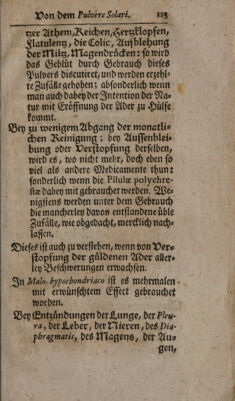 Von dem Pulvere Solari. 125
tzer Athem, Keichen, Hertzklopfen,
Flatulentz, die Colic, Aufblehung
der Miltz, Magendrücken: so wird
das Geblüt durch Gebrauch dieses
Pulvers discutiret, und werden erzehl-
te Zufälle gehoben: absonderlich wenn
man auch dabey der Intention der Na-
tur mit Eröffnung der Ader zu Hülfe
kommt.
Bey zu wenigem Abgang der monatli-
chen Reinigung; bey Aussenblei-
bung oder Verstopfung derselben,
wird es, wo nicht mehr, doch eben so
viel als andere Medicamente thun:
sonderlich wenn die Pilulæ polychre-
stæ dabey mit gebrauchet werden. We-
nigstens werden unter dem Gebrauch
die mancherley davon entstandene üble
Zufälle, wie obgedacht, mercklich nach-
lassen.
Dieses ist auch zu verstehen, wenn von Ver-
stopfung der güldenen Ader aller-
ley Beschwerungen erwachsen.
In Malo hypochondriaco ist es mehrmalen
mit erwünschtem Effect gebrauchet
worden.
Bey Entzündungen der Lunge, der Pleu-
ra, der Leber, der Nieren, des Dia-
phragmatis, des Magens, der Au-
gen,